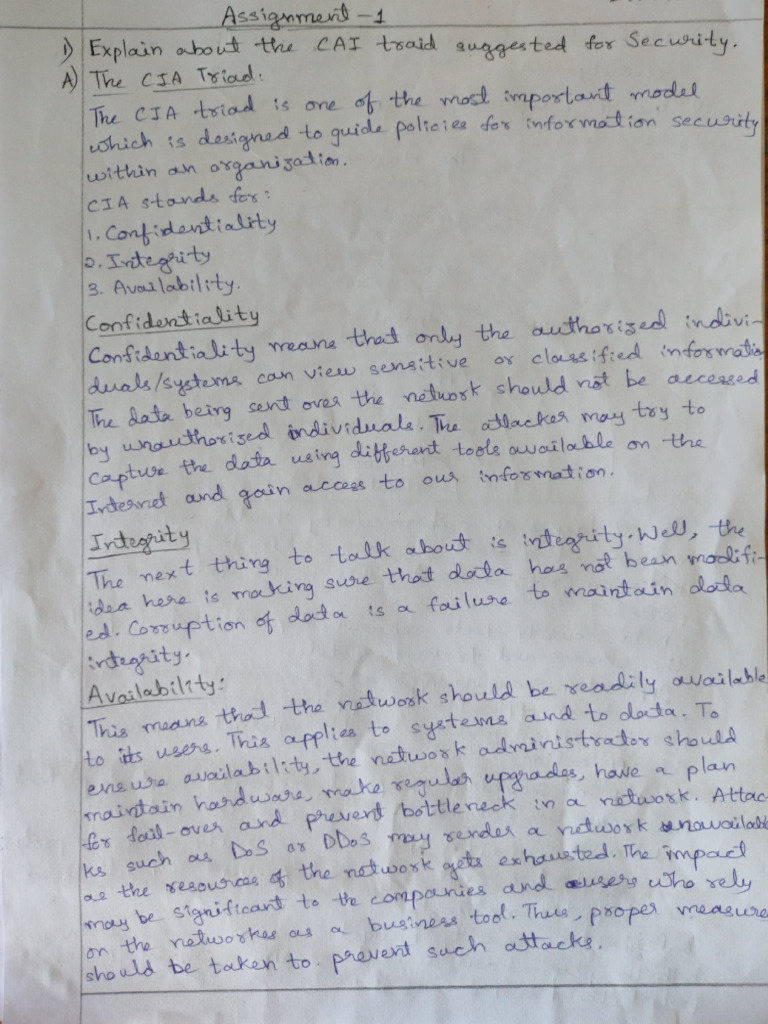 Assignment - 1
1) Explain about the CAI traid suggested for Security.
A) The CIA Triad:
The CIA triad is one of the most important model
which is designed to guide policies for information security
within an organization.
CIA stands for:
1. Confidentiality
2. Integrity
3. Availability.
Confidentiality
Confidentiality means that only the authorized indivi-
duals/systems can view sensitive or classified informatio
The data being sent over the network should not be accessed
by unauthorized individuals. The attacker may try to
capture the data using different tools available on the
Internet and gain access to our information.
Integrity
The next thing to talk about is integrity. Well, the
idea here is making sure that data has not been modifi-
ed. Corruption of data is a failure to maintain data
integrity.
Availability:
This means that the network should be readily available
to its users. This applies to systems and to data. To
ensure availability, the network administrator should
maintain hardware, make regular upgrades, have a plan
for fail-over and prevent bottleneck in a network. Attac-
ks such as DoS or DDoS may render a network unavailabl
as the resources of the network gets exhausted. The impact
may be significant to the companies and users who rely
on the networkes as a business tool. Thus, proper measure
should be taken to prevent such attacks.